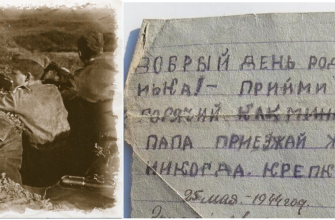 ДОБРЫЙ ДЕНЬ РОД
НЬКА!- ПРИЙМИ
ГОРЯЧИЙ КАК
ПАПА ПРИЕЗЖАЙ
НИКОГДА. КРЕПК
25 мая - 1944 год.